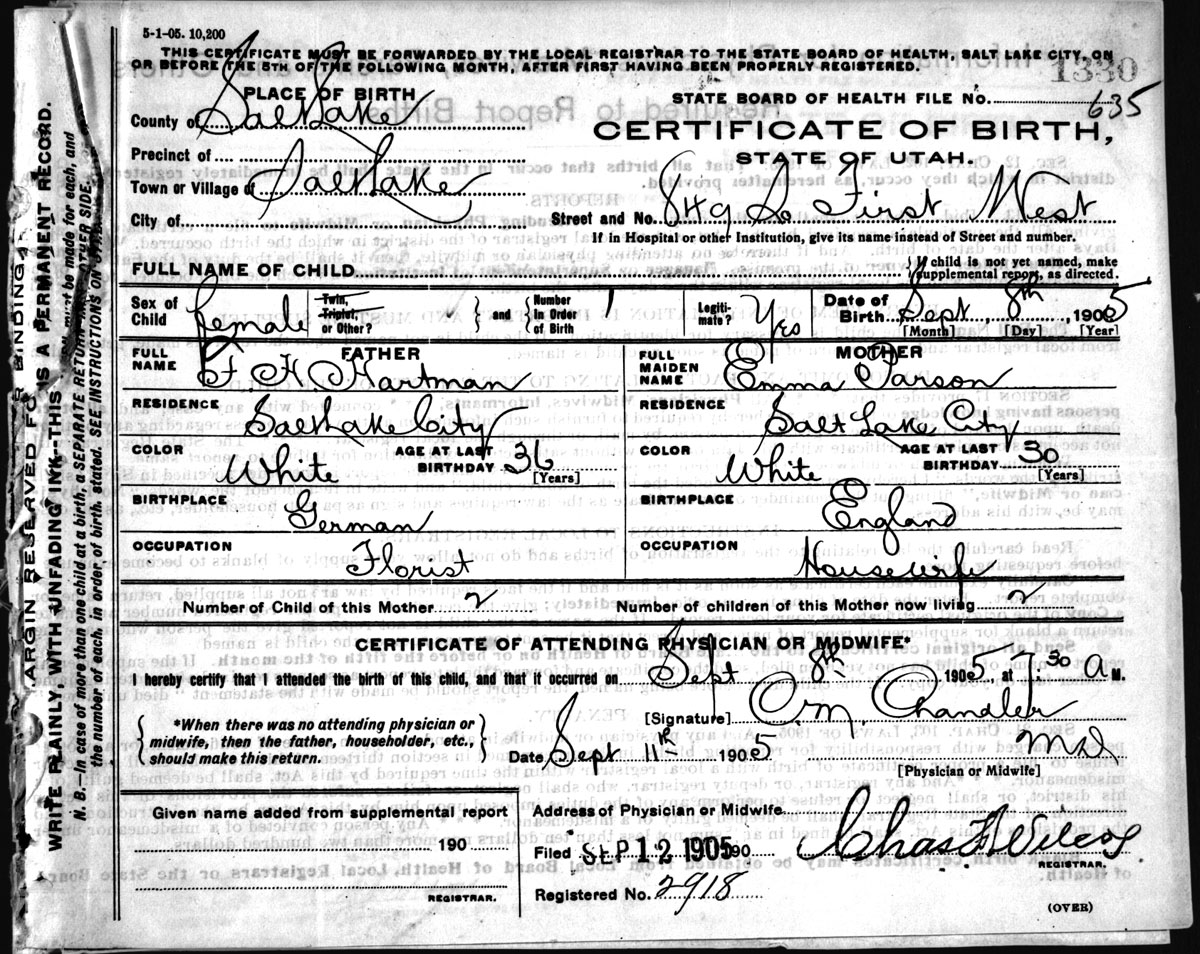 5-1-05. 10,200
THIS CERTIFICATE MUST BE FORWARDED BY THE LOCAL REGISTRAR TO THE STATE BOARD OF HEALTH, SALT LAKE CITY, ON
OR BEFORE THE 5TH OF THE FOLLOWING MONTH, AFTER FIRST HAVING BEEN PROPERLY REGISTERED.
1330
PLACE OF BIRTH
STATE BOARD OF HEALTH FILE NO. 635
County of Salt Lake
CERTIFICATE OF BIRTH,
Precinct of
STATE OF UTAH.
Town or Village of Salt Lake
City of
Street and No. 849 So First West
If in Hospital or other Institution, give its name instead of Street and number.
FULL NAME OF CHILD
If child is not yet named, make
supplemental report, as directed.
Sex of Child female
Twin, Triplet, or Other?
and
Number in Order of Birth 1
Legitimate? Yes
Date of Birth Sept 8th 1905
[Month] [Day] [Year]
FATHER
FULL NAME F. H. Hartman
RESIDENCE Salt Lake City
COLOR White
AGE AT LAST BIRTHDAY 36
[Years]
BIRTHPLACE German
OCCUPATION Florist
MOTHER
FULL MAIDEN NAME Emma Parson
RESIDENCE Salt Lake City
COLOR White
AGE AT LAST BIRTHDAY 30
[Years]
BIRTHPLACE England
OCCUPATION Housewife
Number of Child of this Mother 2
Number of children of this Mother now living 2
CERTIFICATE OF ATTENDING PHYSICIAN OR MIDWIFE*
I hereby certify that I attended the birth of this child, and that it occurred on Sept 8th 1905, at 7.30 a M.
*When there was no attending physician or
midwife, then the father, householder, etc.,
should make this return.
[Signature] O. M. Chandler
Date Sept 11th 1905
M D
[Physician or Midwife]
Given name added from supplemental report
190
REGISTRAR.
Address of Physician or Midwife
Filed SEP 12 1905 190
Chas F Wilcox
REGISTRAR.
Registered No. 2918
(OVER)
MARGIN RESERVED FOR BINDING
WRITE PLAINLY, WITH UNFADING INK—THIS IS A PERMANENT RECORD.
N. B.—In case of more than one child at a birth, a SEPARATE RETURN must be made for each, and
the number of each, in order of birth, stated. SEE INSTRUCTIONS ON OTHER SIDE.